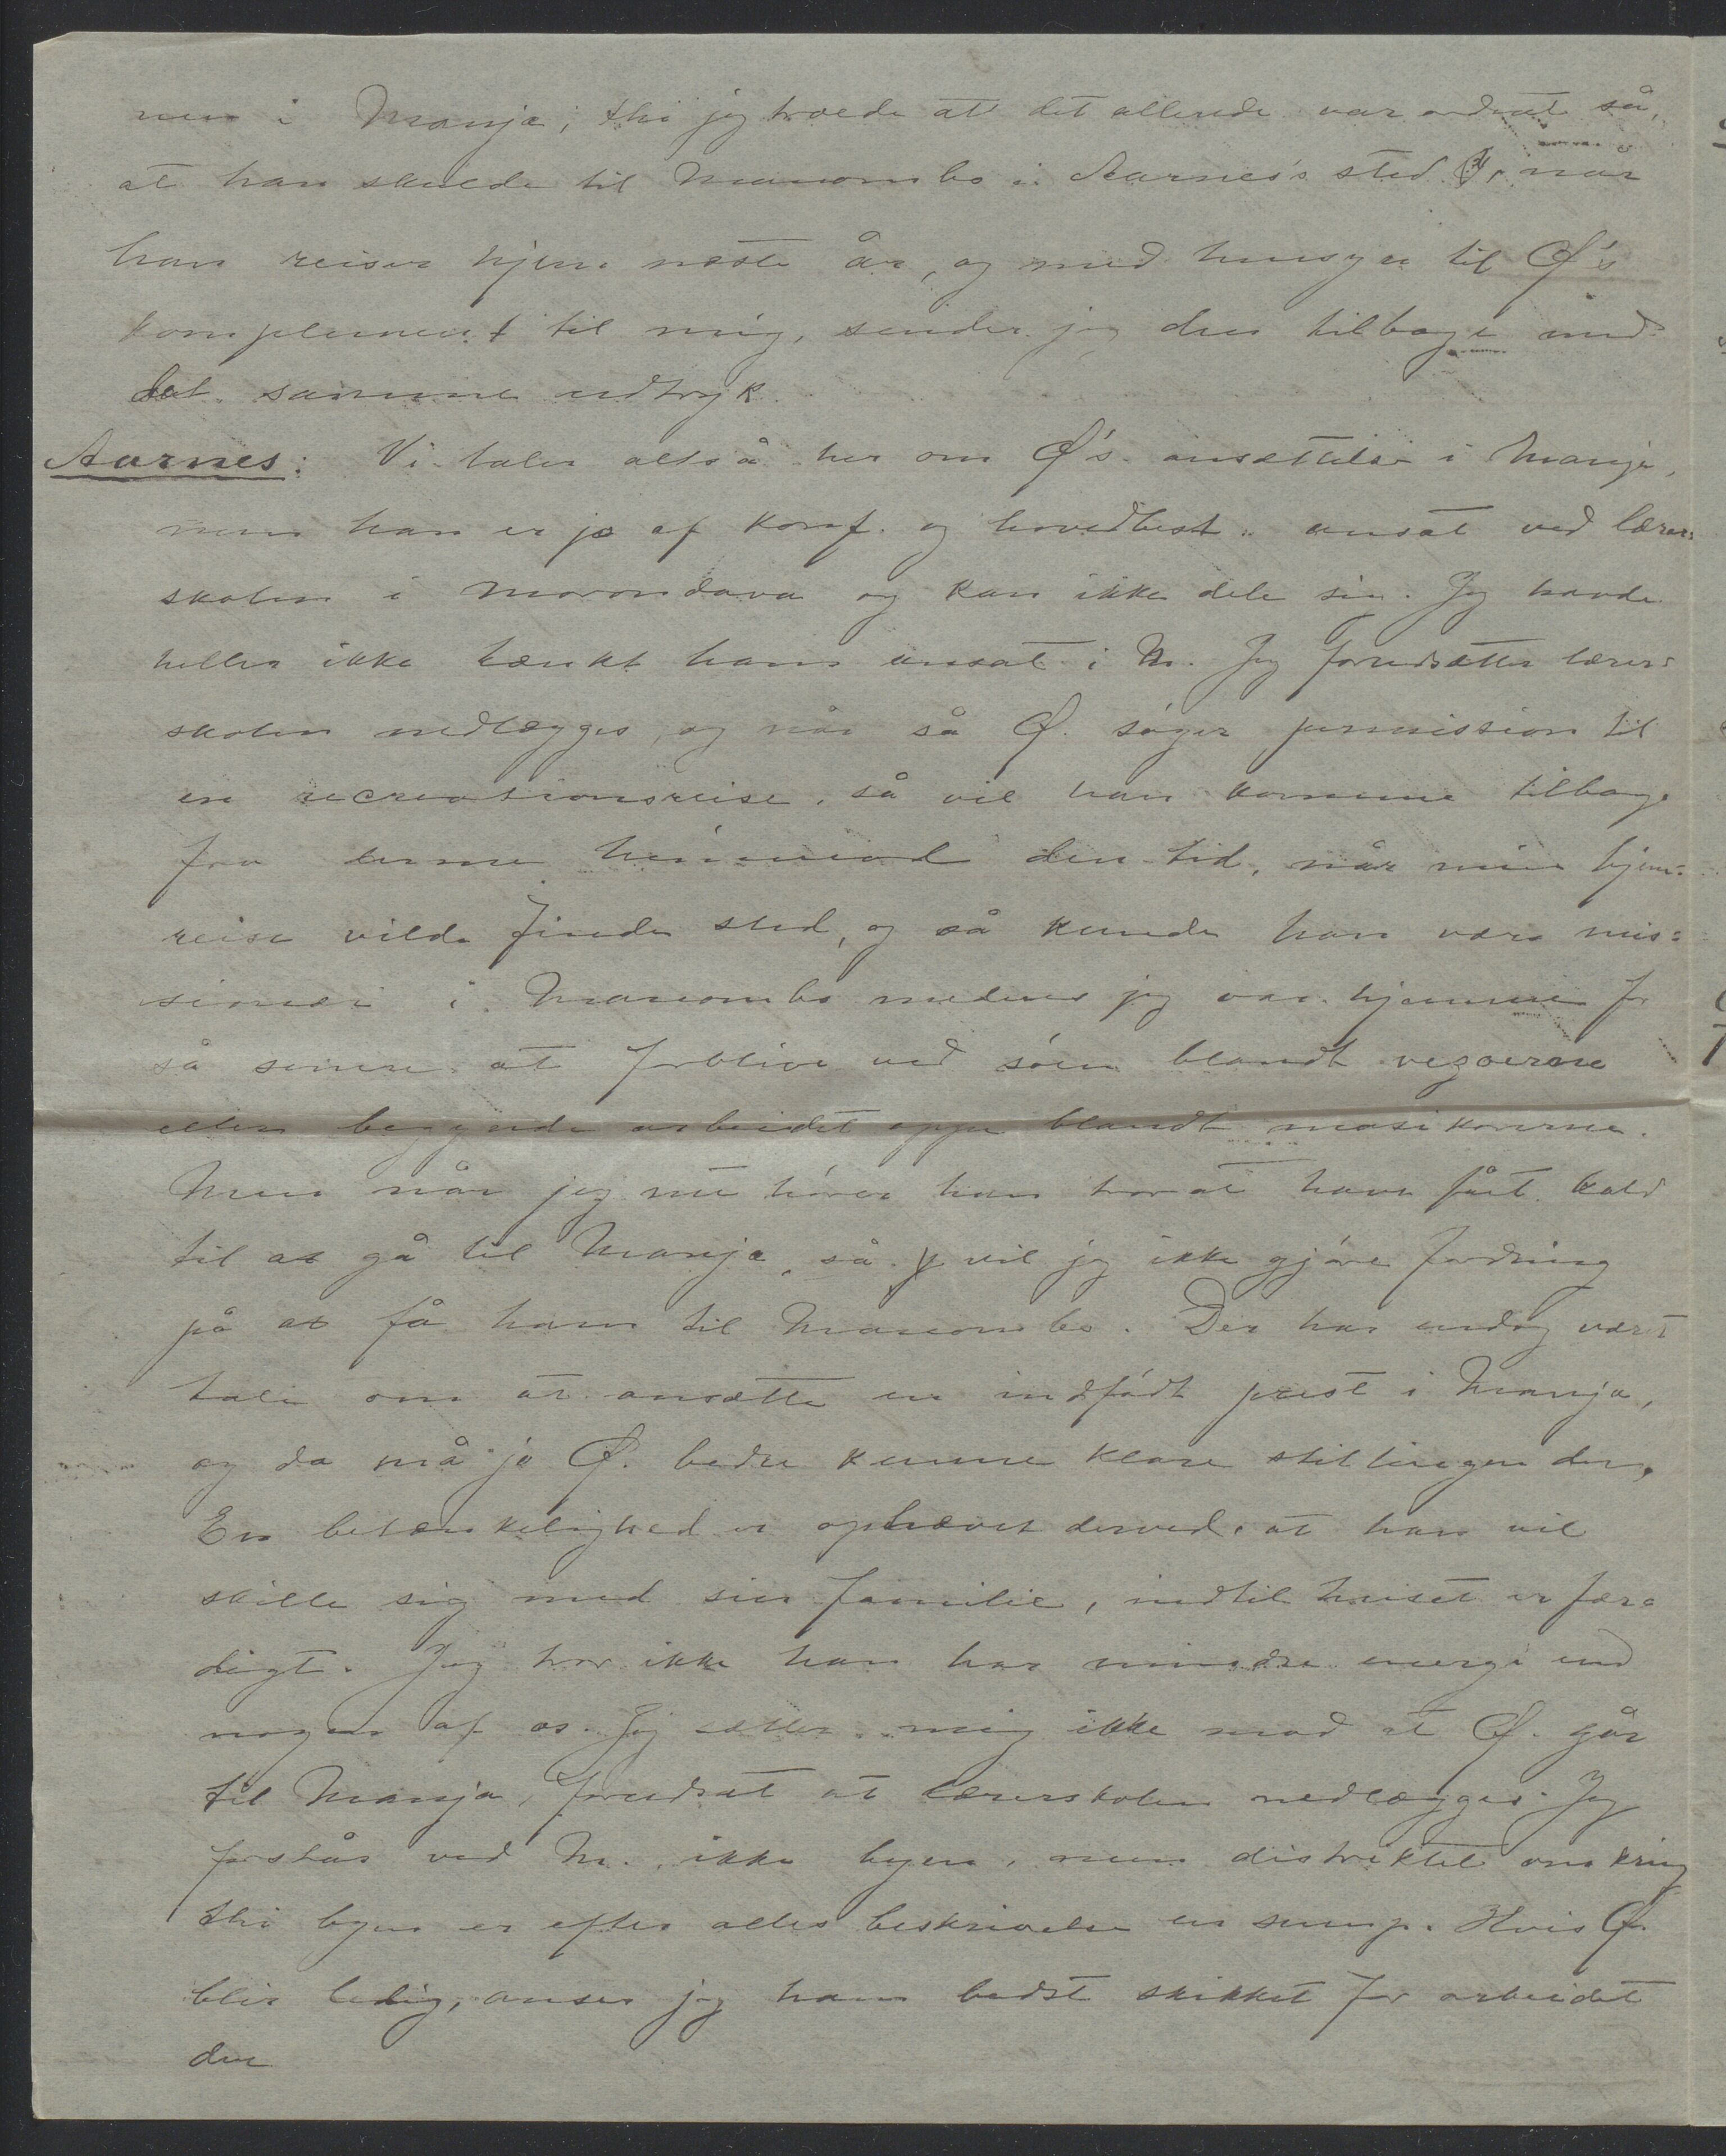 men i Manja; thi jeg troede at det allerede var ordnet så,
at han skulde til Manombo i Aarnes's sted, når
han reiser hjem næste år, og med hensyn til Ø's
kompliment til mig, sender jeg den tilbage med
det samme udtryk.
Aarnes: Vi taler altså her om Ø's ansættelse i Manja,
men han er jo af konf. og hovedbest. ansat ved lærer=
skolen i Morondava og kan ikke dele sig. Jeg havde
heller ikke tænkt ham ansat i M. Jeg forudsætter lærer=
skolen nedlægges, og når så Ø. søger permission til
en recreationsreise, så vil han komme tilbage
fra denne henimod den tid, når min hjem=
reise vilde finde sted, og så kunde han være mis=
sionær i Manombo medens jeg var hjemme for
så senere at forblive ved søen blandt vezoerne
eller begynde arbeidet oppe blandt masikorerne.
Men når jeg nu hører han tror at have fåt kald
til at gå til Manja, så vil jeg ikke gjøre fordring
på at få ham til Manombo. Der har endog været
tale om at ansætte en indfødt prest i Manja,
og da må jo Ø. bedre kunne klare stillingen der.
En betænkelighed er ophævet derved, at han vil
skille sig med sin familie, indtil huset er fær=
digt. Jeg tror ikke han har mindre energi end
nogen af os. Jeg sætter mig ikke mod at Ø. går
til Manja, forudsat at lærerskolen nedlægges. Jeg
forstår ved M. ikke byen, men distriktet omkring
thi byen er efter alles beskrivelse en sump. Hvis Ø.
blir ledig, anser jeg ham bedst skikket for arbeidet
der